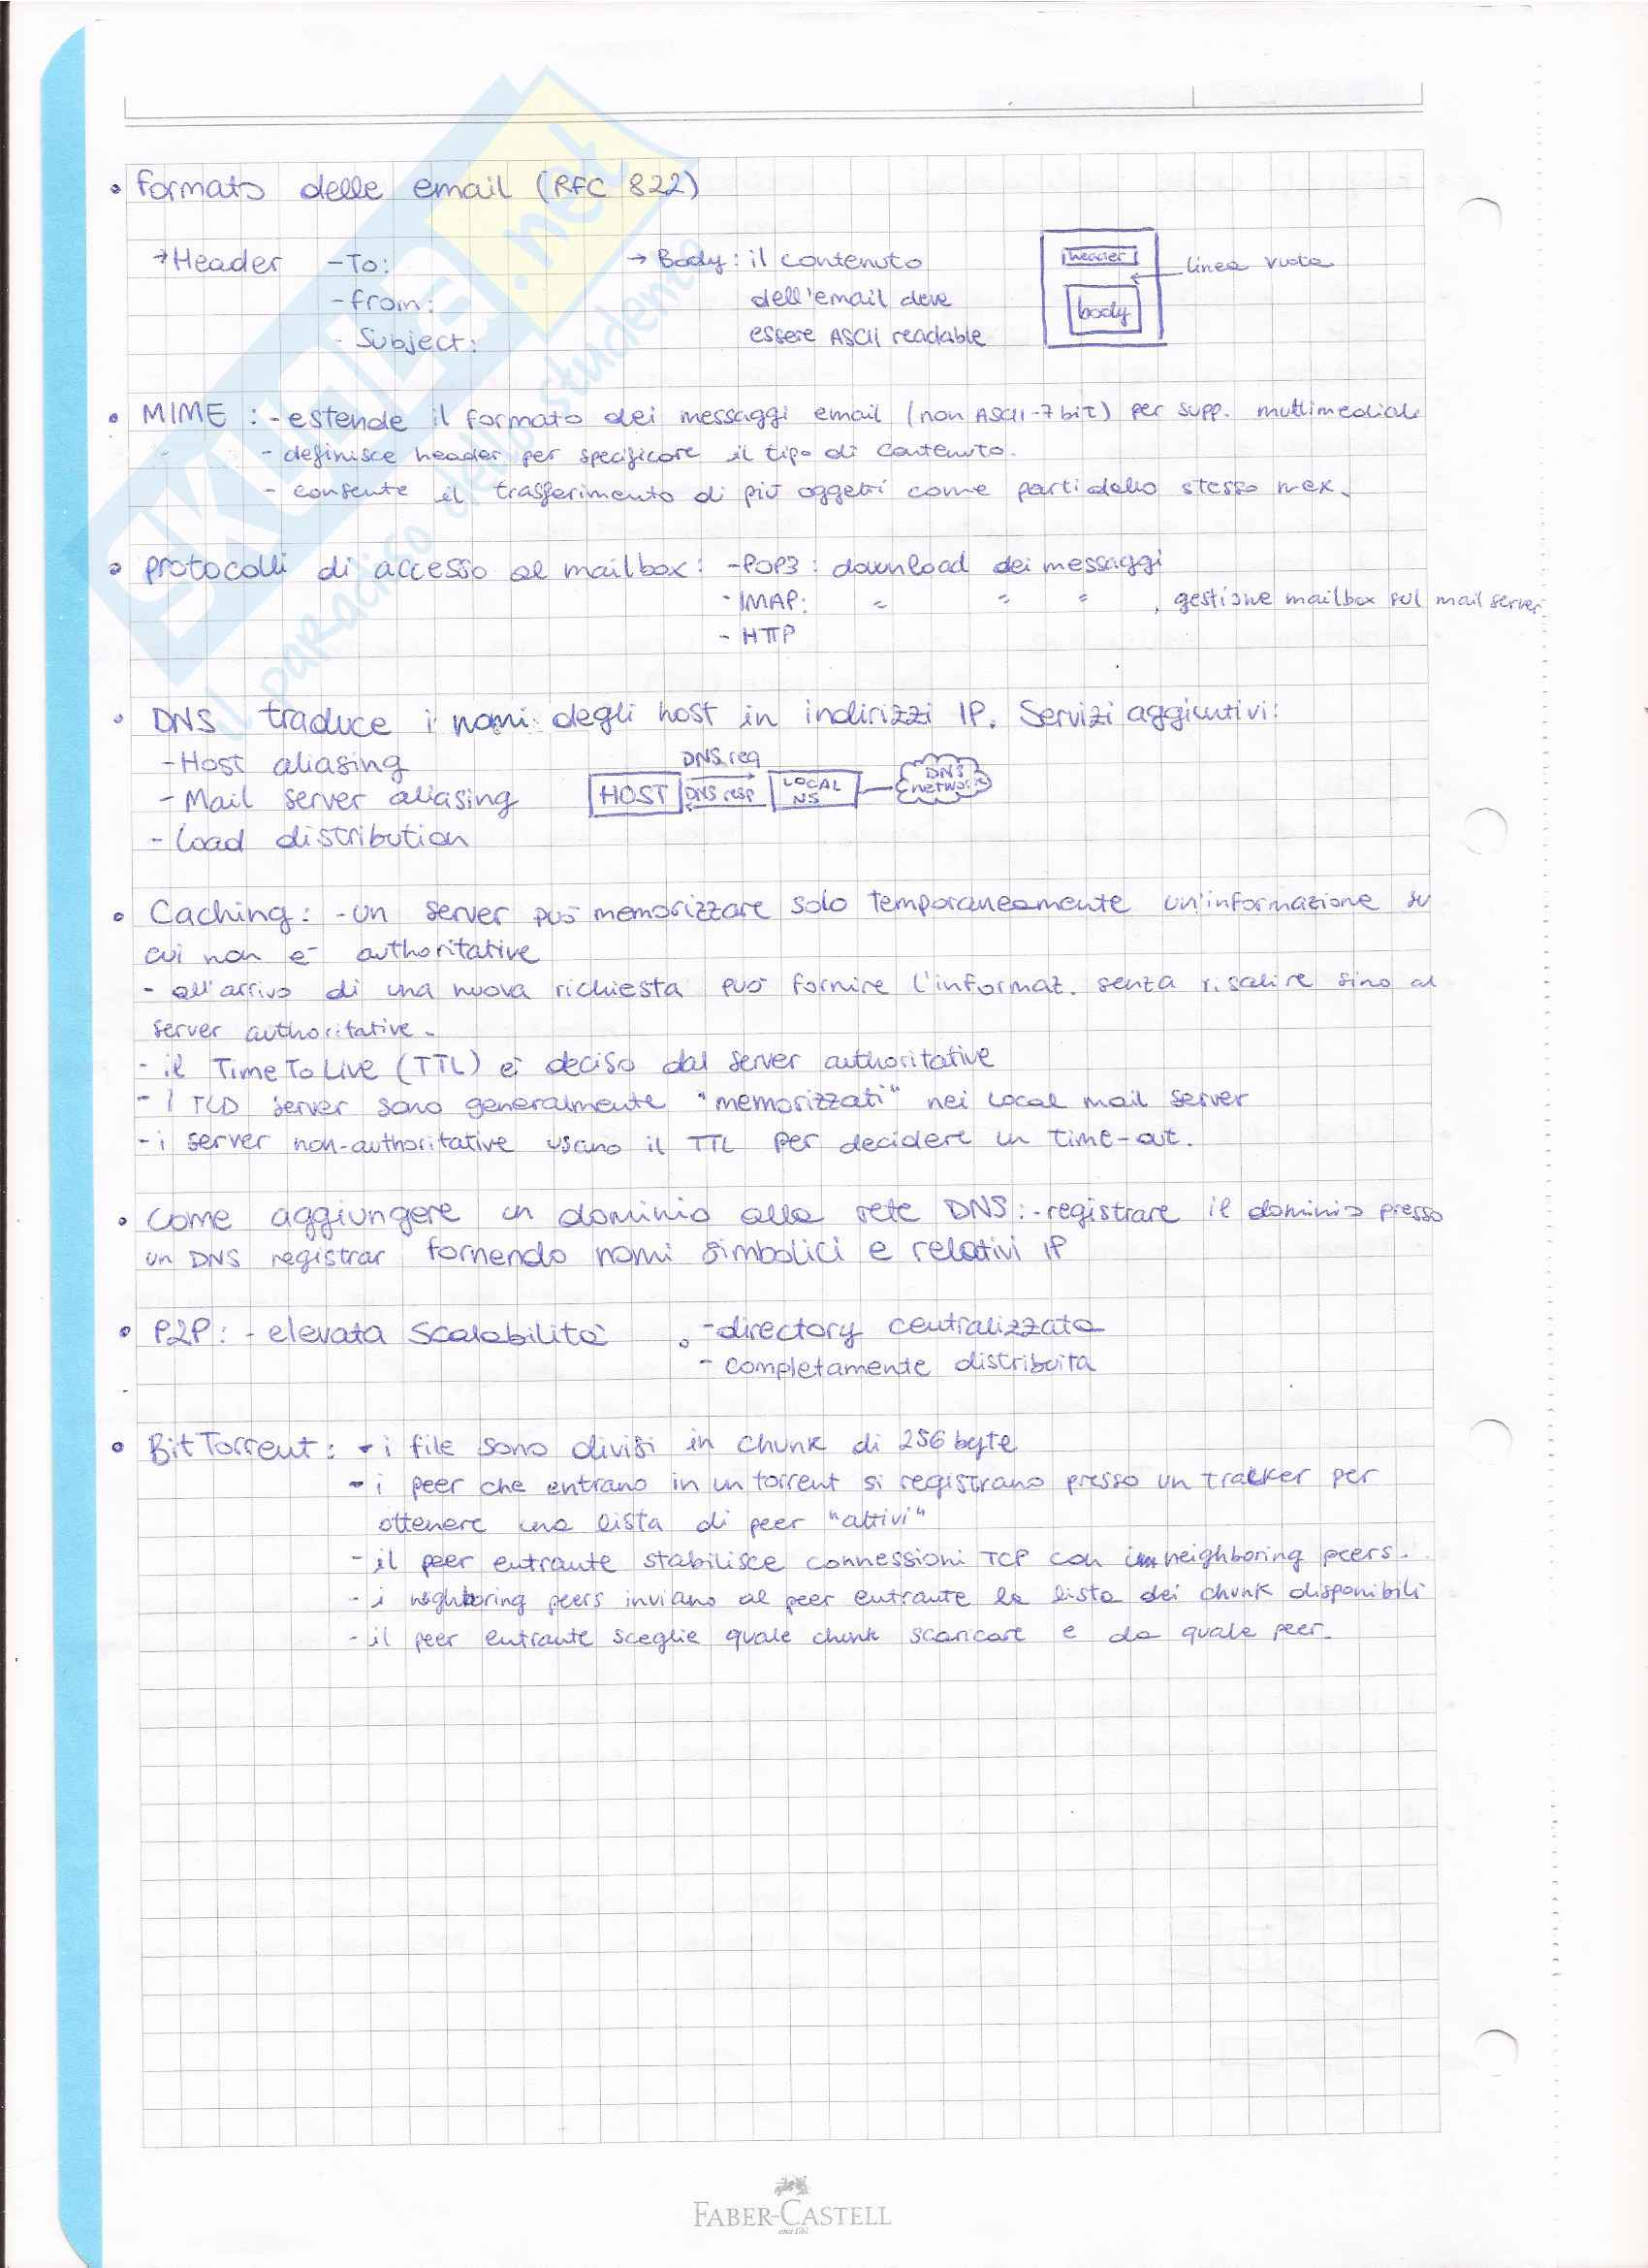 • Formato delle email (RFC 822)
→ Header - To: → Body: il contenuto
- From: dell'email deve
- Subject: essere ASCII readable
header
linea vuota
body
• MIME: - estende il formato dei messaggi email (non ASCII-7 bit) per supp. multimediali
- definisce header per specificare il tipo di contenuto.
- consente il trasferimento di più oggetti come parti dello stesso mex.
• Protocolli di accesso al mailbox: - POP3: download dei messaggi
- IMAP: " " " , gestione mailbox sul mail server
- HTTP
• DNS traduce i nomi degli host in indirizzi IP. Servizi aggiuntivi:
- Host aliasing
- Mail server aliasing
- Load distribution
HOST
DNS req
DNS resp
LOCAL NS
DNS network
• Caching: - un server può memorizzare solo temporaneamente un'informazione su
cui non è authoritative
- all'arrivo di una nuova richiesta può fornire l'informaz. senza risalire sino al
server authoritative.
- il Time To Live (TTL) è deciso dal server authoritative
- I TLD server sono generalmente "memorizzati" nei local mail server
- i server non-authoritative usano il TTL per decidere un time-out.
• Come aggiungere un dominio alla rete DNS: - registrare il dominio presso
un DNS registrar fornendo nomi simbolici e relativi IP
• P2P: - elevata scalabilità • - directory centralizzata
- completamente distribuita
• BitTorrent: - i file sono divisi in chunk di 256 byte
- i peer che entrano in un torrent si registrano presso un tracker per
ottenere una lista di peer "attivi"
- il peer entrante stabilisce connessioni TCP con i neighboring peers.
- i neighboring peers inviano al peer entrante la lista dei chunk disponibili
- il peer entrante sceglie quale chunk scaricare e da quale peer.
SKUOLA.net
il paradiso dello studente
FABER-CASTELL